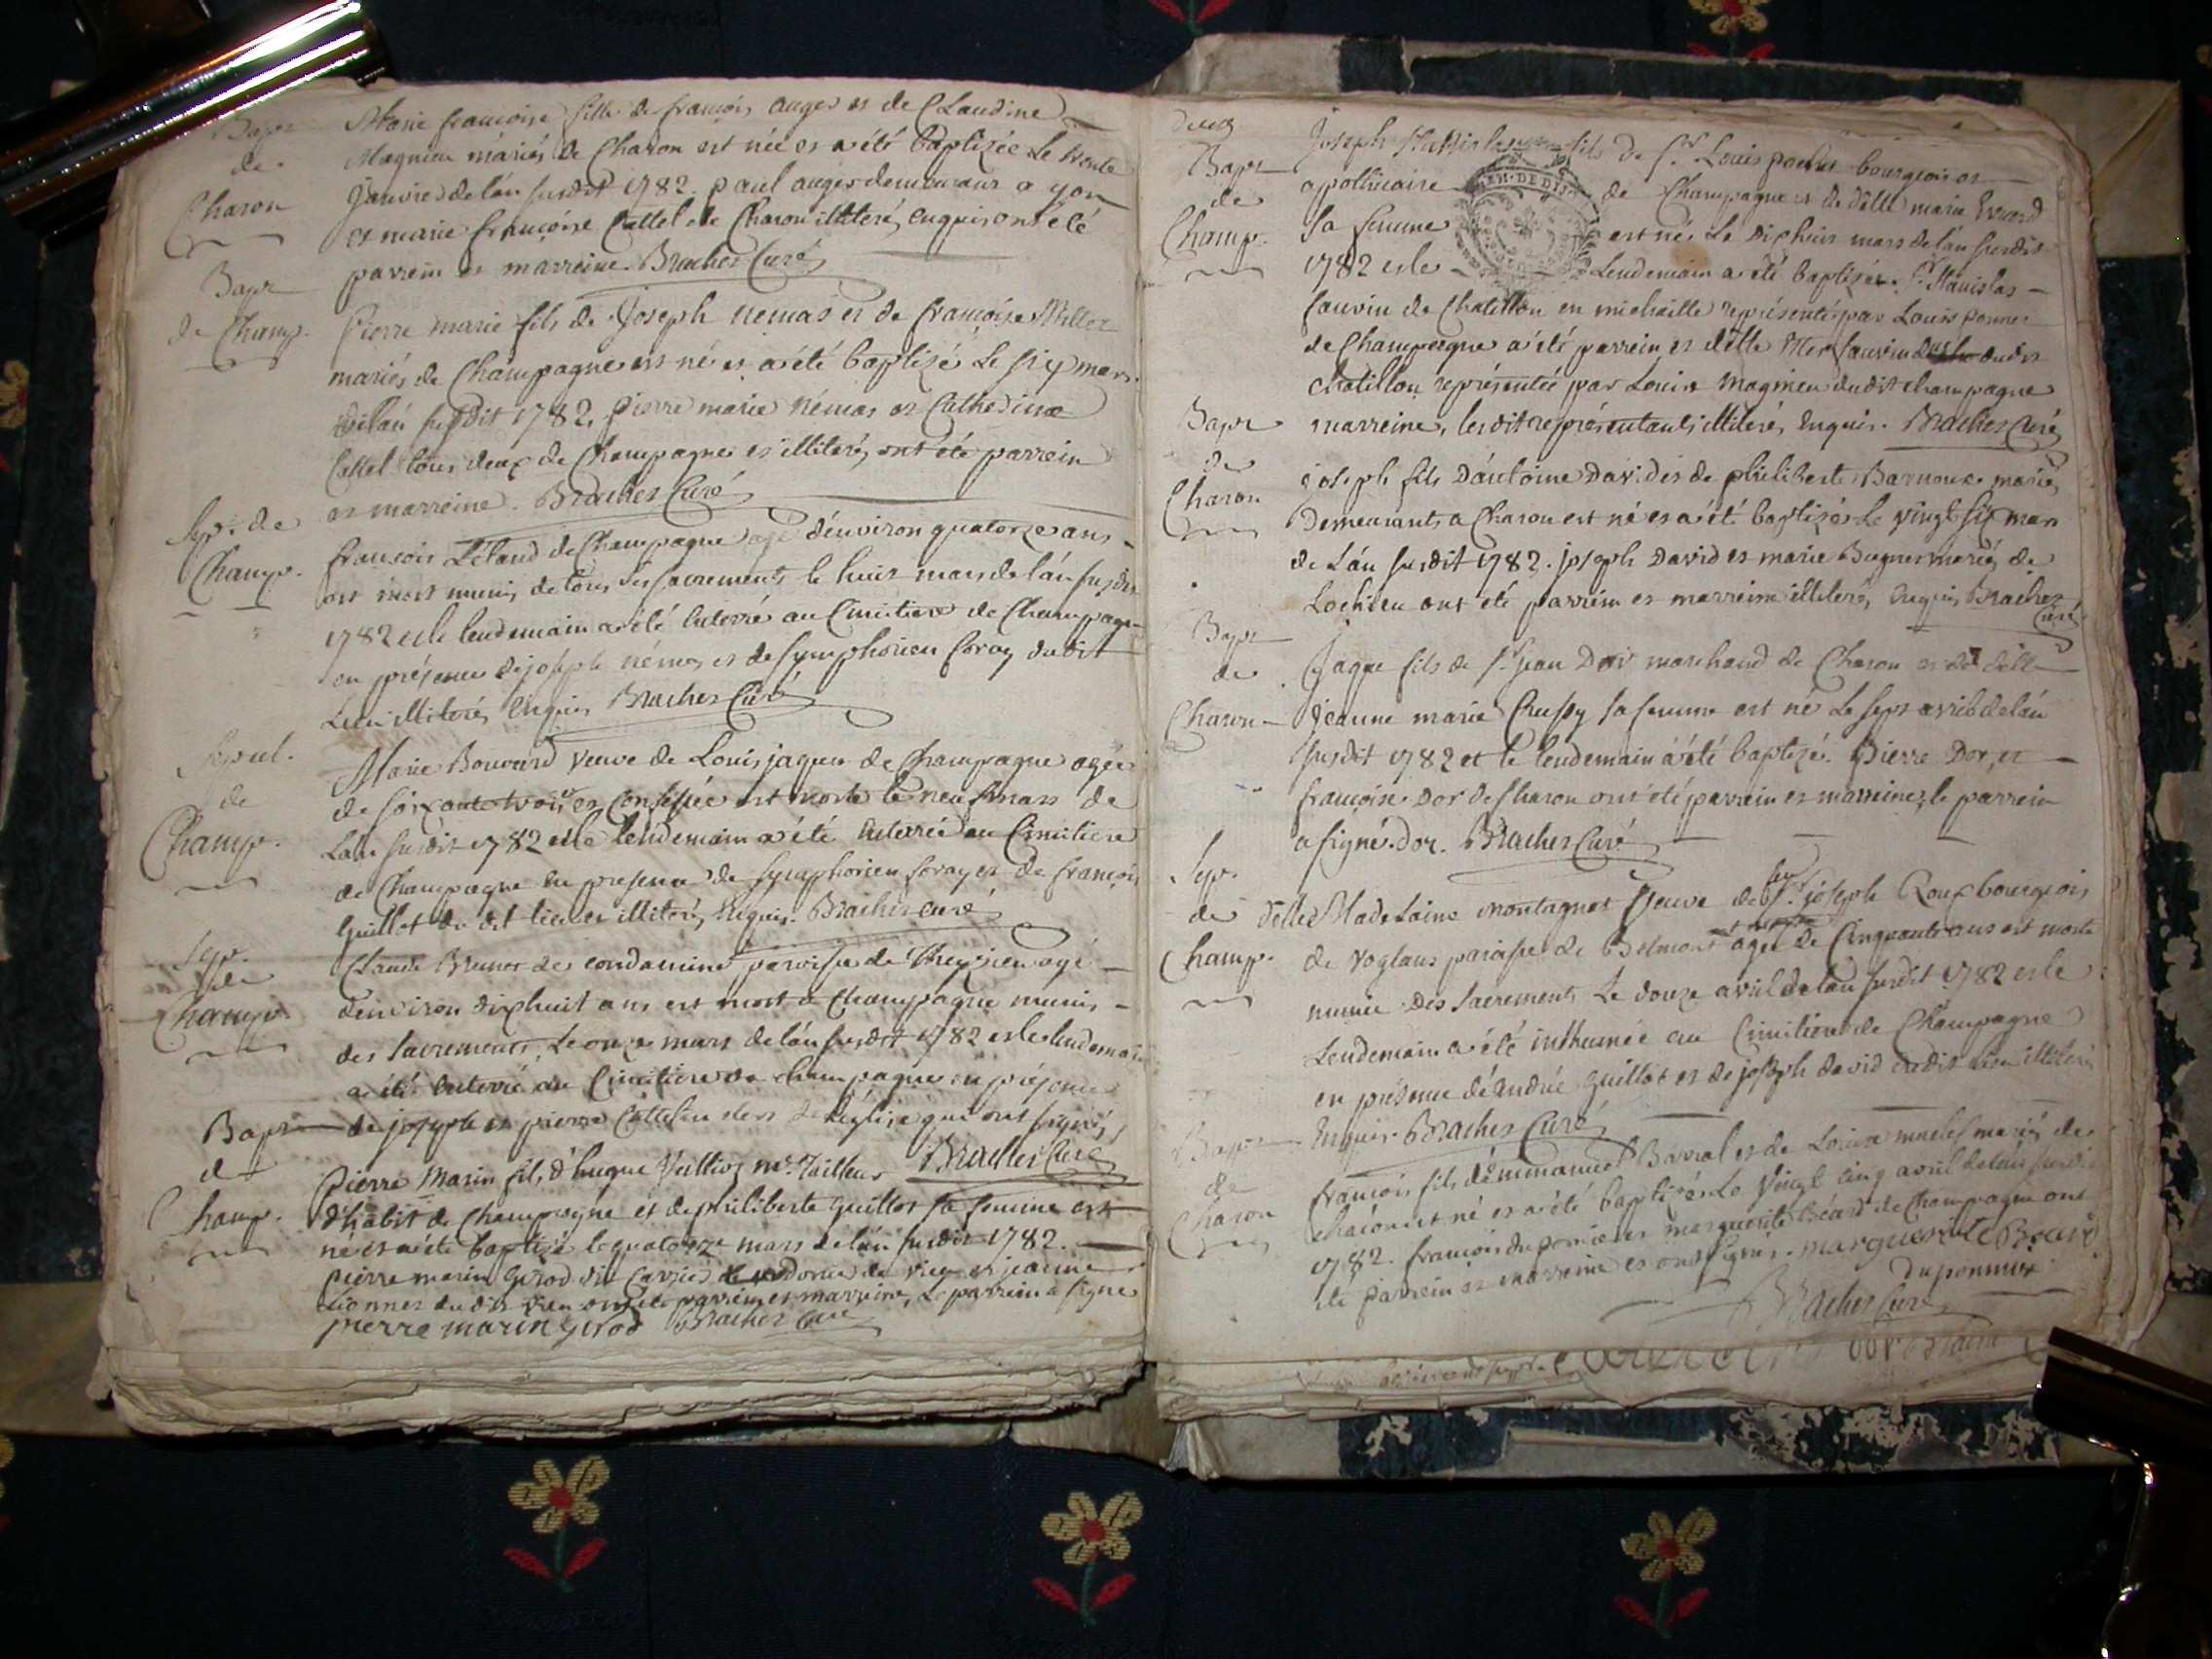 Bapt
de
Charon
Marie francoise fille de francois auger et de Claudine
Magnieu mariés de Charon est née et a été baptizée Le trente
Janvier de l'an susdit 1782. paul auger demeurant a yon
et marie françoise Cattel de Charon illiteré, enquis ont été
parrein et marreine. Bracher Curé
Bapt
de Champ.
Pierre marie fils de Joseph nemas et de francoise Millet
mariés de Champagne est né et a été baptizé Le six mars
de l'an susdit 1782. pierre marie némas et Catherine
Cattel tous deux de Champagne et illiterés ont été parrein
et marreine. Bracher Curé
Sep. de
Champ.
francois Létaud de Champagne agé d'environ quatorze ans
est mort munis de tous ses sacrements le huit mars de l'an susdit
1782 et le lendemain a été enterré au Cimitiere de Champagne
en présence de joseph némas et de symphorien soray dudit
Lieu illiterés enquis Bracher Curé
Sepul.
de
Champ.
Marie Bouvard veuve de Louis jaquer de Champagne agée
de soixante trois et Confessée est morte le neuf mars de
L'an susdit 1782 et le lendemain a été enterrée au Cimitiere
de Champagne en presence de symphorien soray et de françois
Guillot du dit lieu et illiterés enquis. Bracher curé
Sep.
de
Champ.
Claude Brunet de condamine paroisse de agé
d'environ dixhuit ans est mort a Champagne munis
des sacrements, Le onze mars de l'an susdit 1782 et le lendemain
a été enterré au Cimitiere de champagne en présence
de joseph et pierre Cattelin clers de l'église qui ont signés
Bapt
de
Champ.
Bracher Curé
Pierre Marin fils d'hugue Vuilliot mr. Tailleur
d'habit de Champagne et de philiberte Guillot sa femme est
né et a été baptizé le quatorze mars de l'an susdit 1782.
Pierre marin Girod de vieu et jeanne
du dit vieu ont été parrein et marreine, Le parrein a signé
pierre marin Girod Bracher Curé
Bapt
de
Champ.
Joseph Stanislas fils de Sr. Louis bourgeois et
apothicaire de Champagne et de delle marie Evrard
sa femme est né Le dixhuit mars de l'an susdit
1782 et le Lendemain a été baptizé. Sr. Stanislas
sauvin de Chatillon en michaille représenté par Louis ponnet
de Champagne a été parrein et delle sauvin dudit
chatillon représentée par Louise Magnieu dudit champagne
marreine, les dit représentants illiterés enquis. Bracher Curé
Bapt
de
Charon
joseph fils D'antoine David et de philiberte Barnoux mariés
Demeurants a Charon est né et a été baptizé Le vingt six mars
de L'an susdit 1782. joseph David et marie Bugner mariés de
Lochieu ont été parrein et marreine illiterés, enquis Bracher
Curé
Bapt
de
Charon
Jaque fils de Sr. jean Dor marchand de Charon et de delle
Jeanne marie Chussy sa femme est né Le sept avril de l'an
susdit 1782 et le lendemain a été baptizé. Pierre Dor, et
françoise Dor de Charon ont été parrein et marreine, le parrein
a signé. Dor. Bracher Curé
Sep.
de
Champ.
delle Madelaine montagnat veuve de feu Sr. joseph Roux bourgeois
de voglans paroisse de Belmont agée de Cinquante ans est morte
munie des sacrements Le douze avril de l'an susdit 1782 et le
Lendemain a été inhumée au Cimitiere de Champagne
en présence d'andrée Guillot et de joseph david dudit Lieu illiterés
Enquis. Bracher Curé
Bapt
de
Charon
françois fils d'emmanuel Barral et de Louise mariés de
charon est né et a été baptizé Le vingt cinq avril de l'an susdit
1782. françois duponnier et marguerite Béard de Champagne ont
été parrein et marreine et ont signés. marguerite Beard
duponnier
Bracher Curé